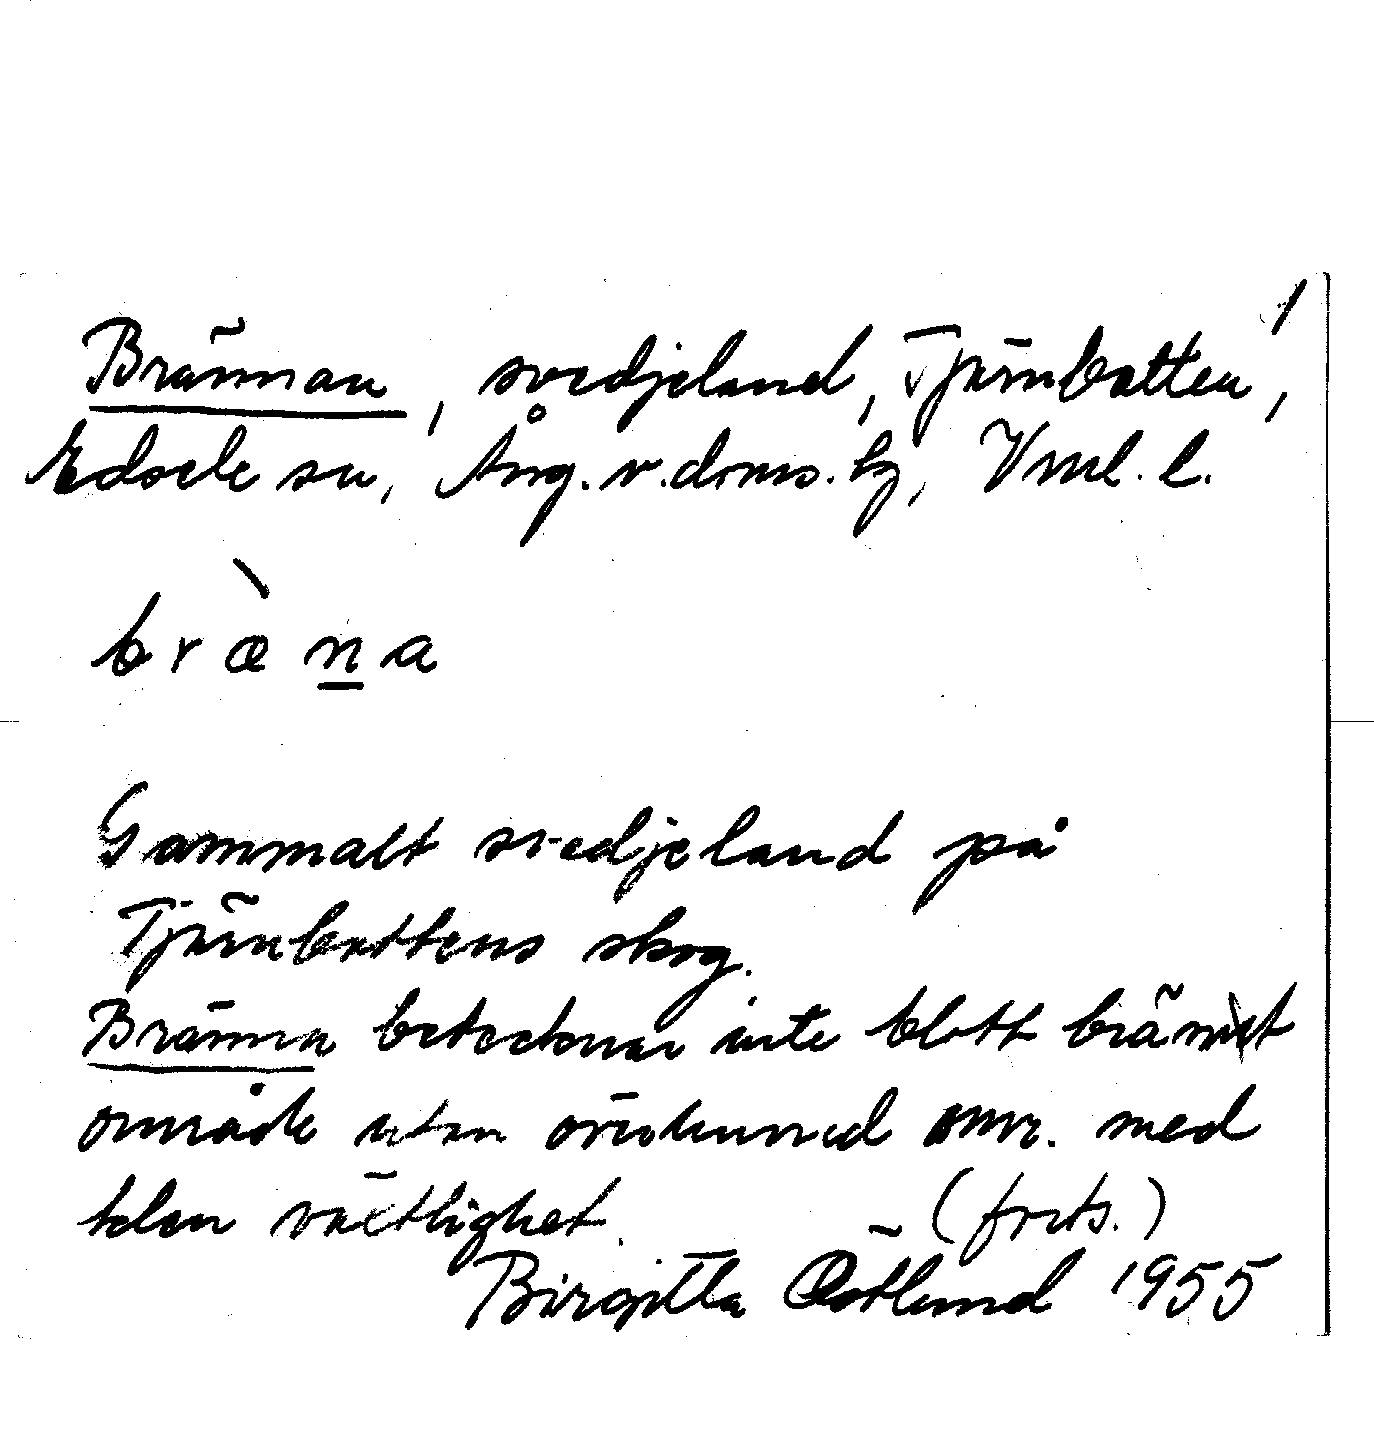 1
Brännan, svedjeland, Tjärnbotten,
Edsele sn, Ång. v. doms. hg, Vml. l.
bræ̀n̲a
Gammalt svedjeland på
Tjärnbottens skog.
Bränna betecknar inte blott bränt
område utan även med
klen växtlighet. (forts.)
Birgitta Östlund 1955